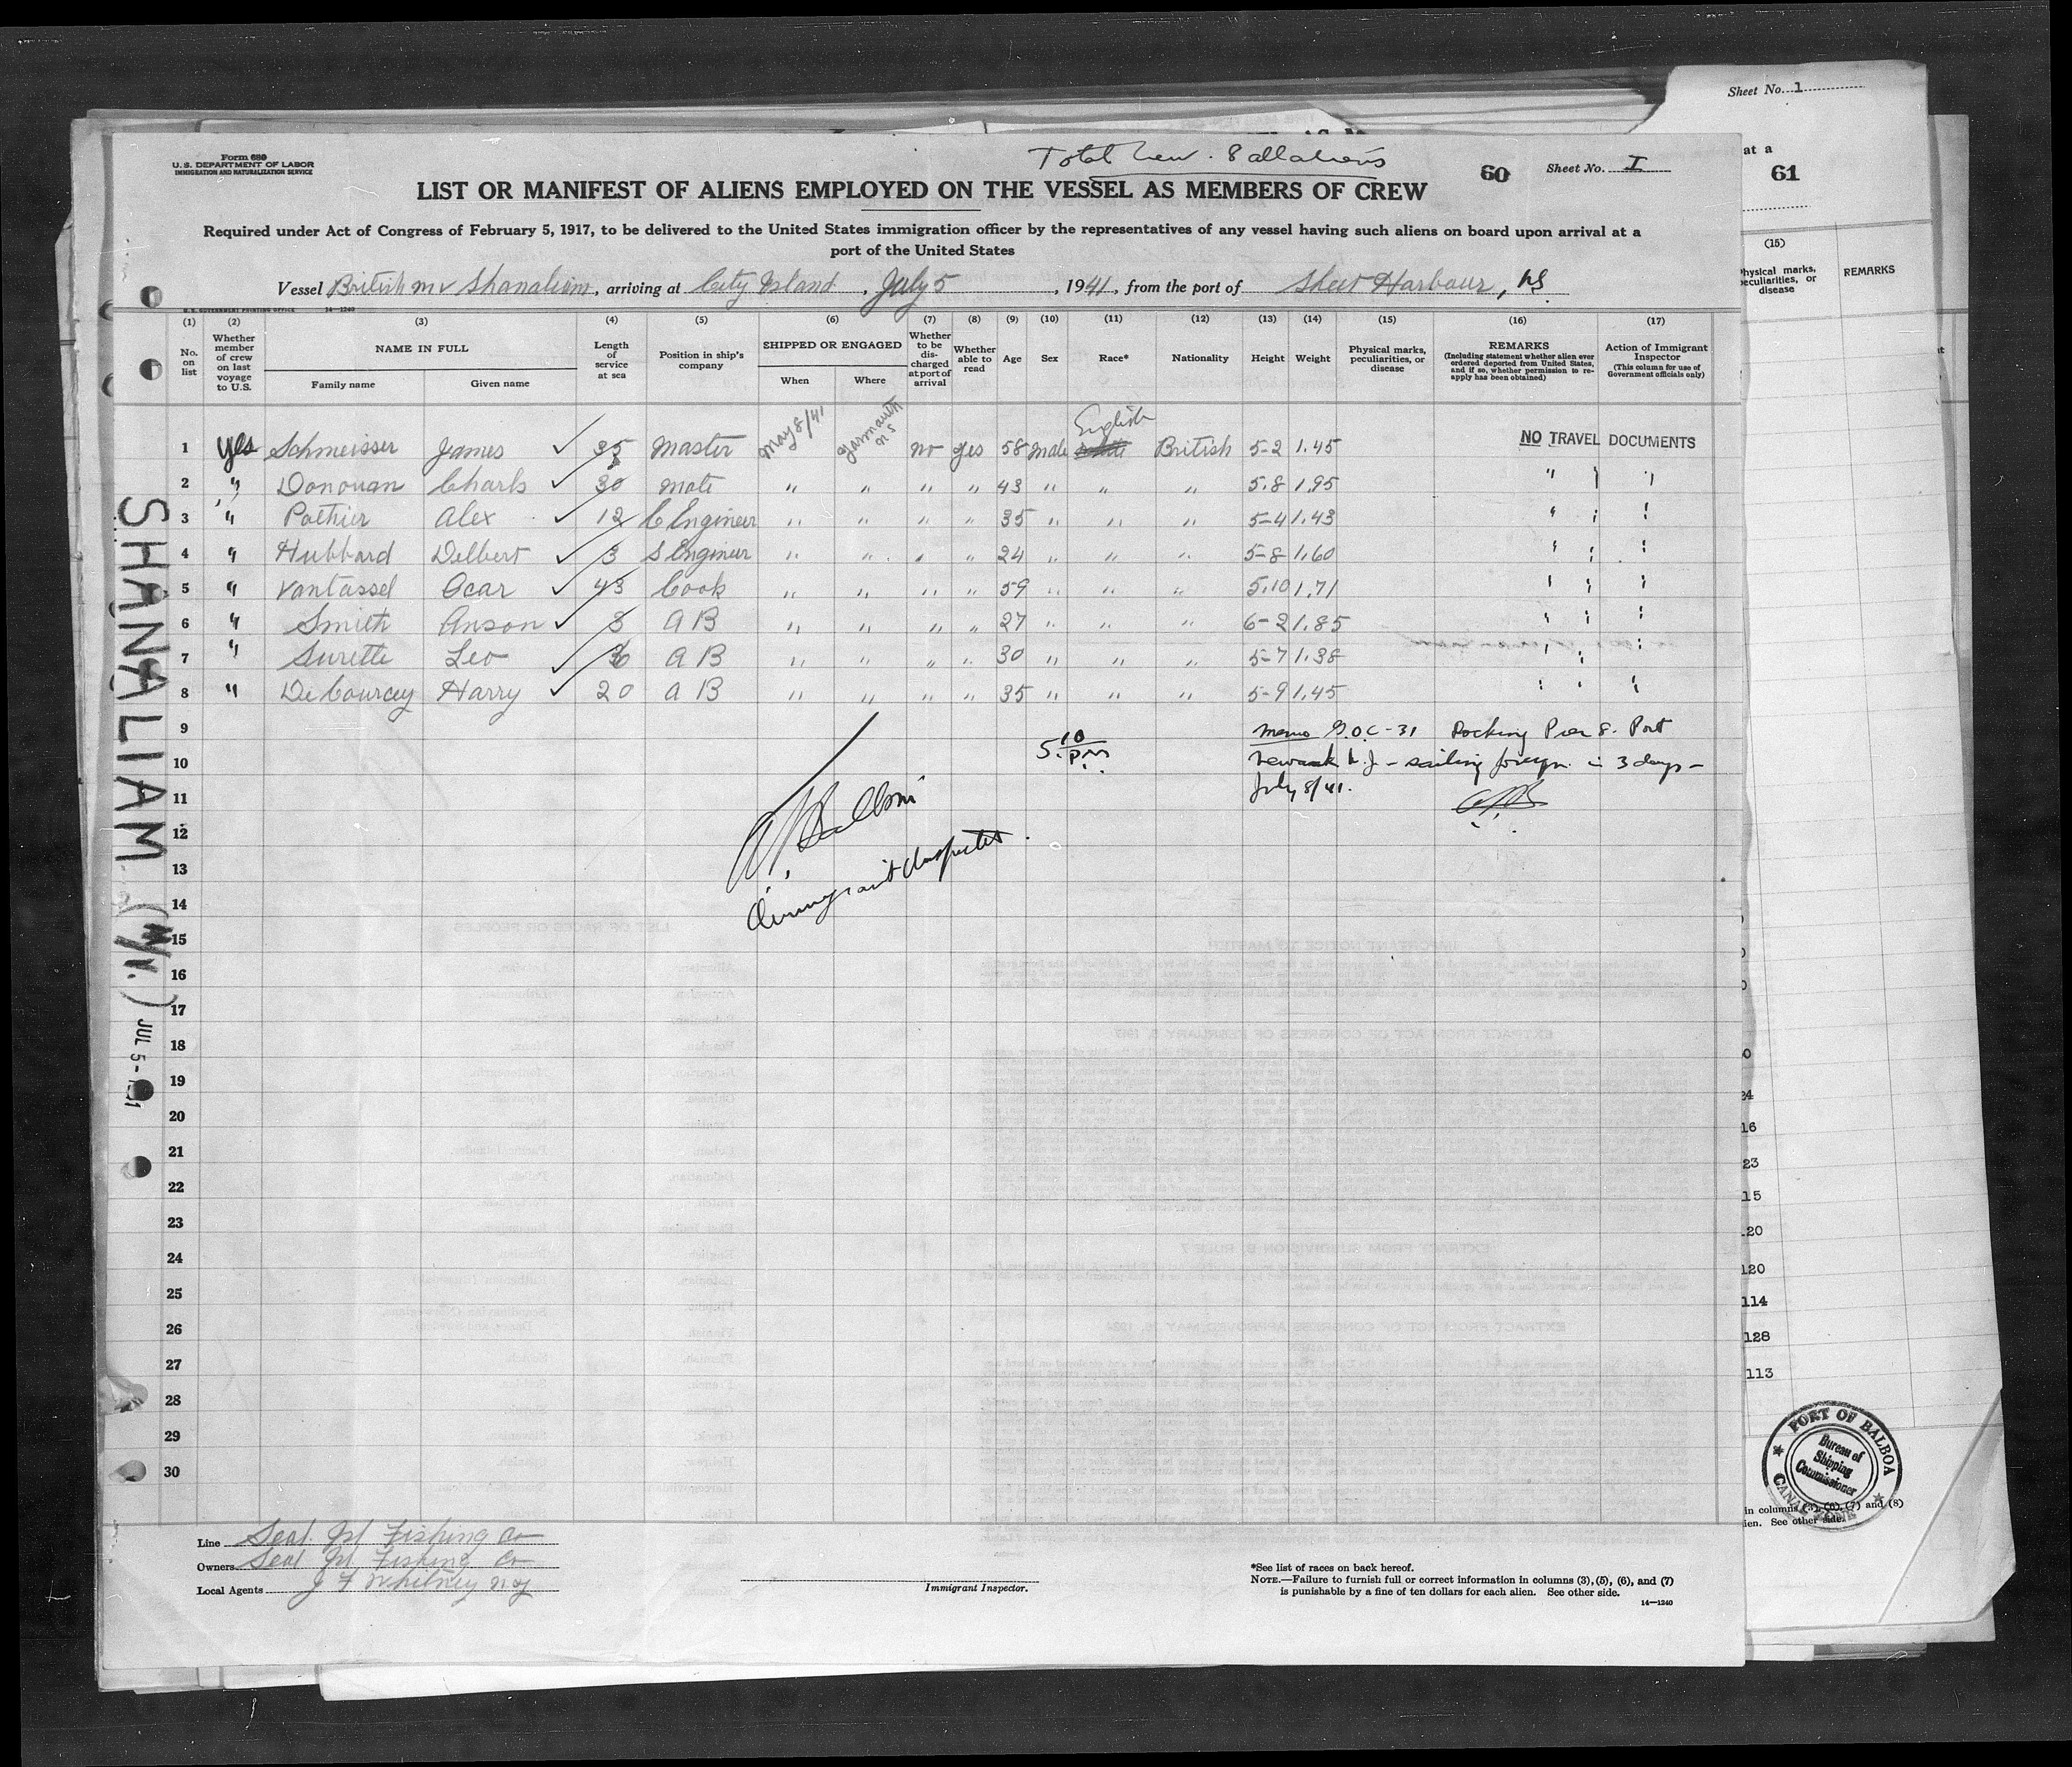 Sheet No. 1
Form 680
U. S. DEPARTMENT OF LABOR
IMMIGRATION AND NATURALIZATION SERVICE
Total Crew. 8 all aliens
60
Sheet No. I
at a
61
LIST OR MANIFEST OF ALIENS EMPLOYED ON THE VESSEL AS MEMBERS OF CREW
Required under Act of Congress of February 5, 1917, to be delivered to the United States immigration officer by the representatives of any vessel having such aliens on board upon arrival at a
port of the United States
Vessel British M V Shanaliam, arriving at City Island, July 5, 1941, from the port of Sheet Harbour, NS.
U. S. GOVERNMENT PRINTING OFFICE 14—1240
(1) (2) (3) (4) (5) (6) (7) (8) (9) (10) (11) (12) (13) (14) (15) (16) (17)
No. on list
Whether member of crew on last voyage to U.S.
NAME IN FULL
Family name Given name
Length of service at sea
Position in ship's company
SHIPPED OR ENGAGED
When Where
Whether to be discharged at port of arrival
Whether able to read
Age Sex Race* Nationality Height Weight
Physical marks, peculiarities, or disease
REMARKS
(Including statement whether alien ever ordered deported from United States, and if so, whether permission to reapply has been obtained)
Action of Immigrant Inspector
(This column for use of Government officials only)
(15)
Physical marks, peculiarities, or disease
REMARKS
English
1 yes Schmeisser James ✓ 35 Master May 8/41 Yarmouth NS no yes 58 Male British 5-2 1.45 NO TRAVEL DOCUMENTS
2 " Donovan Charls ✓ 30 Mate " " " " 43 " " " 5.8 1.95 " " "
3 " Pothier Alex ✓ 12 C Engineer " " " " 35 " " " 5-4 1.43 " " "
4 " Hubbard Delbert ✓ 3 S Engineer " " " " 24 " " " 5-8 1.60 " " "
5 " Vantassel Ocar ✓ 43 Cook " " " " 59 " " " 5.10 1.71 " " "
6 " Smith Anson ✓ 8 A B " " " " 27 " " " 6-2 1.85 " " "
7 " Surette Leo ✓ A B " " " " 30 " " " 5-7 1.38 " " "
8 " DeCourcey Harry ✓ 20 A B " " " " 35 " " " 5-9 1.45 " " "
9
10
11
12
13
14
15
16
17
18
19
20
21
22
23
24
25
26
27
28
29
30
5:10 PM
Memo G.O.C-31 Docking Pier 8. Port
Newark N.J - sailing foreign in 3 days -
July 8/41.
Immigrant Inspector
SHANALIAM (M/V.) JUL 5 -
24
16
23
15
120
120
114
128
113
PORT OF BALBOA
Bureau of
Shipping
Commissioner
CANAL ZONE
in columns (3), (6), (7) and (8)
ien. See other side.
Line Seal Isl Fishing Co
Owners Seal Isl Fishing Co
Local Agents J F Whitney N Y
Immigrant Inspector.
*See list of races on back hereof.
NOTE.—Failure to furnish full or correct information in columns (3), (5), (6), and (7)
is punishable by a fine of ten dollars for each alien. See other side.
14—1240